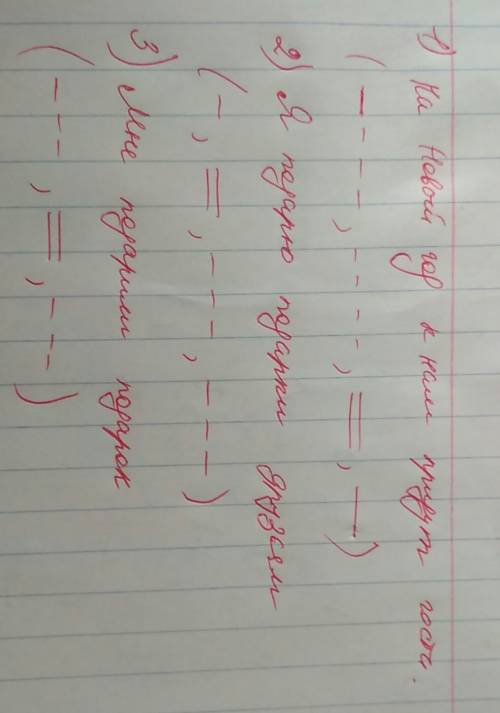 1) На Новый год к нам придут гости.
(- - - -, - - - -, =, —)
2) Я подарю подарки друзьям
(—, =, - - -, - - -)
3) Мне подарили подарок
(- - -, =, - - -)